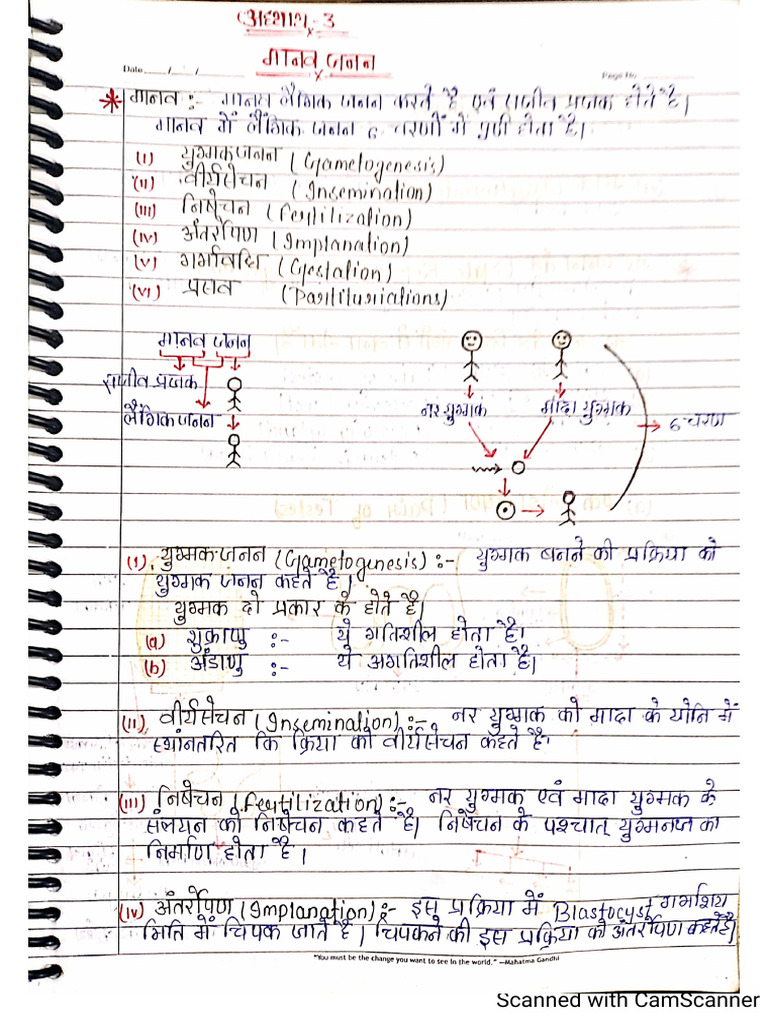 अध्याय - 3
मानव जनन
Date ___/___/___ Page No.
* मानव :- मानव लैंगिक जनन करते है एवं सजीव प्रजक होते है।
मानव में लैंगिक जनन 6 चरणों में पूर्ण होता है।
(i) युग्मकजनन (Gametogenesis)
(ii) वीर्यसेचन (Insemination)
(iii) निषेचन (Fertilization)
(iv) अंतर्रोपण (Implanation)
(v) गर्भावधि (Gestation)
(vi) प्रसव
मानव जनन
सजीव प्रजक
लैंगिक जनन
नर युग्मक मादा युग्मक
6 चरण
(i). युग्मक जनन (Gametogenesis) :- युग्मक बनने की प्रक्रिया को
युग्मक जनन कहते है।
युग्मक दो प्रकार के होते है।
(a) शुक्राणु :- ये गतिशील होता है।
(b) अंडाणु :- ये अगतिशील होता है।
(ii) वीर्यसेचन (Insemination) :- नर युग्मक को मादा के योनि में
स्थांनतरित कि क्रिया को वीर्यसेचन कहते है।
(iii) निषेचन (Fertilization) :- नर युग्मक एवं मादा युग्मक के
संलयन को निषेचन कहते है। निषेचन के पश्चात् युग्मनज का
निर्माण होता है।
(iv) अंतर्रोपण (Implanation) :- इस प्रक्रिया में Blastocyst गर्भाशय
भिति में चिपक जाते है। चिपकने की इस प्रक्रिया को अंतर्रोपण कहते है।
"You must be the change you want to see in the world." —Mahatma Gandhi
Scanned with CamScanner